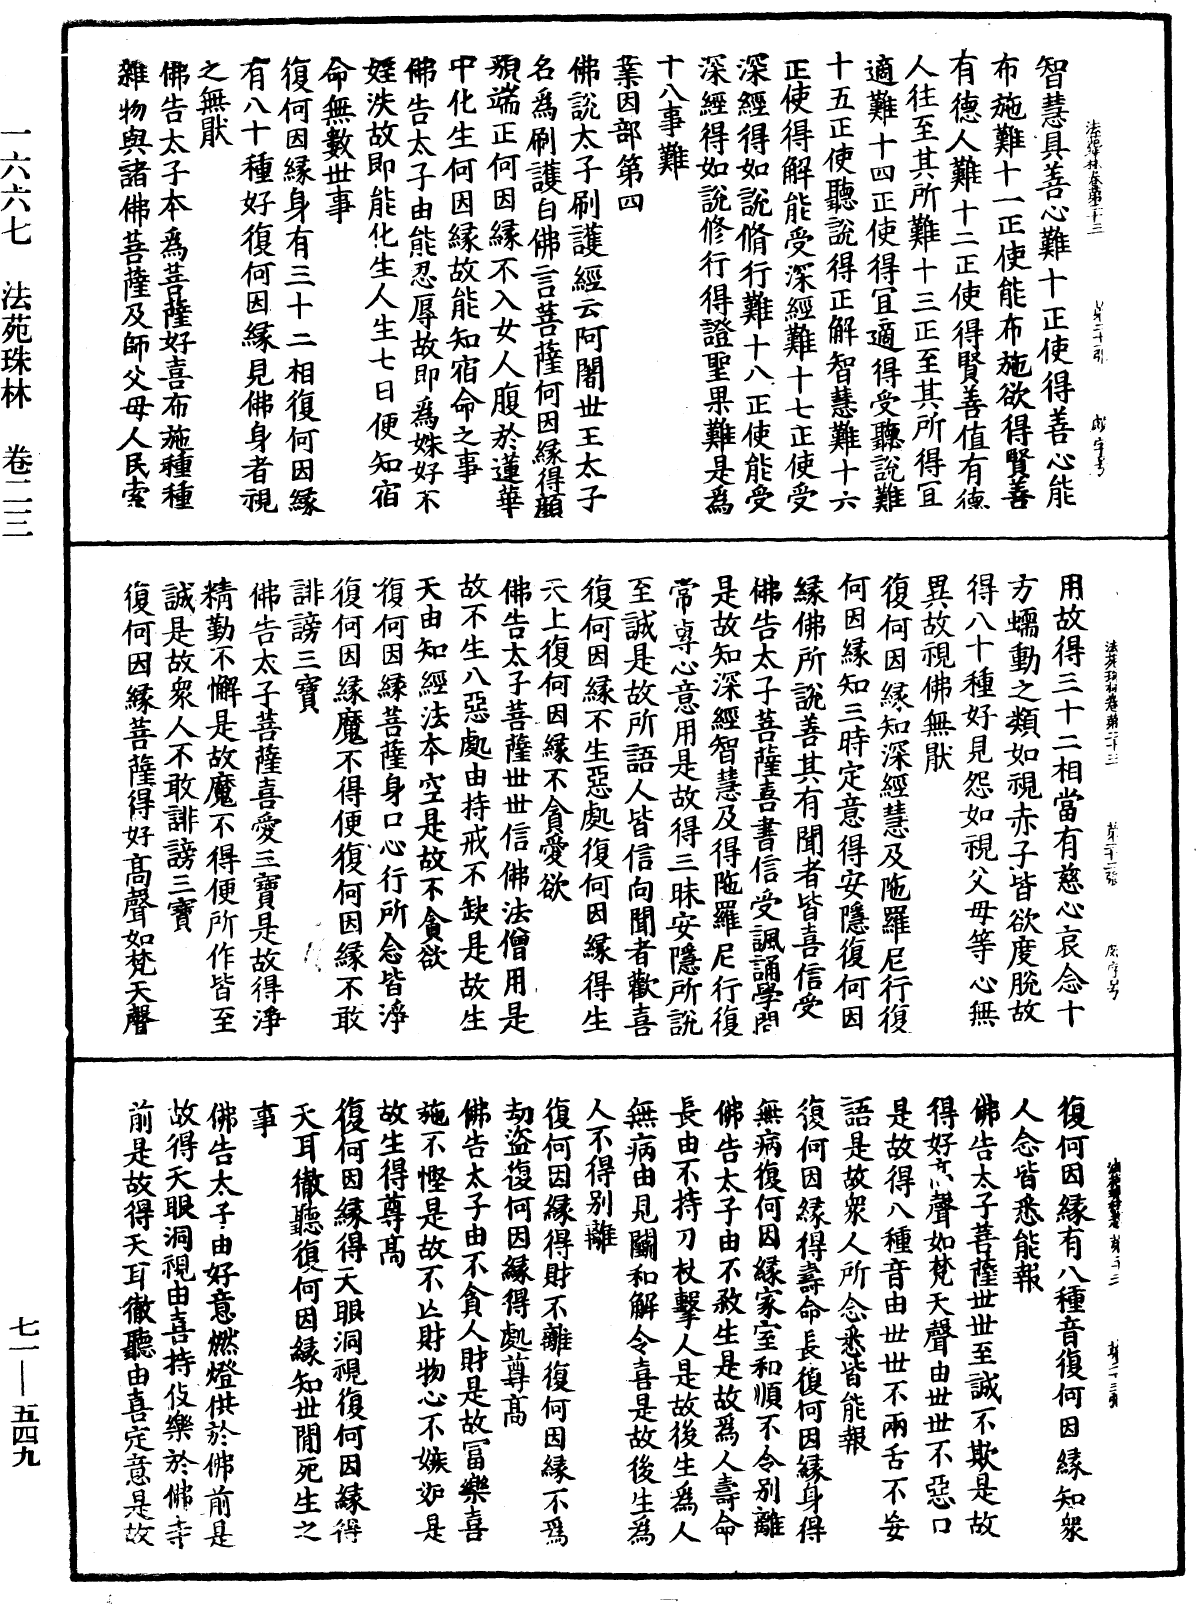 智慧具善心難十正使得善心能
布施難十一正使能布施欲得賢善
有德人難十二正使得賢善值有德
人往至其所難十三正至其所得冝
適難十四正使得冝適得受聽說難
十五正使聽說得正解智慧難十六
正使得解能受深經難十七正使受
深經得如說脩行難十八正使能受
深經得如說修行得證聖果難是爲
十八事難
業因部第四
佛說太子刷護經云阿闍世王太子
名爲刷護白佛言菩薩何因緣得顏
貌端正何因緣不入女人腹於蓮華
中化生何因緣故能知宿命之事
佛告太子由能忍辱故即爲姝好不
婬泆故即能化生人生七日便知宿
命無數世事
復何因緣身有三十二相復何因緣
有八十種好復何因緣見佛身者視
之無猒
佛告太子本爲菩薩好喜布施種種
雜物與諸佛菩薩及師父母人民索
用故得三十二相當有慈心哀念十
方蠕動之類如視赤子皆欲度脫故
得八十種好見怨如視父母等心無
異故視佛無猒
復何因緣知深經慧及陁羅尼行復
何因緣知三時定意得安隱復何因
緣佛所說善其有聞者皆喜信受
佛告太子菩薩喜書信受諷誦學問
是故知深經智慧及得陁羅尼行復
常專心意用是故得三昧安隱所說
至誠是故所語人皆信向聞者歡喜
復何因緣不生惡處復何因緣得生
天上復何因緣不貪愛欲
佛告太子菩薩世世信佛法僧用是
故不生八惡處由持戒不缺是故生
天由知經法本空是故不貪欲
復何因緣菩薩身口心行所念皆淨
復何因緣魔不得便復何因緣不敢
誹謗三寶
佛告太子菩薩喜愛三寶是故得淨
精勤不懈是故魔不得便所作皆至
誠是故衆人不敢誹謗三寶
復何因緣菩薩得好高聲如梵天聲
復何因緣有八種音復何因緣知衆
人念皆悉能報
佛告太子菩薩世世至誠不欺是故
得好高聲如梵天聲由世世不惡口
是故得八種音由世世不兩舌不妄
語是故衆人所念悉皆能報
復何因緣得壽命長復何因緣身得
無病復何因緣家室和順不令別離
佛告太子由不殺生是故爲人壽命
長由不持刀杖擊人是故後生爲人
無病由見鬭和解令喜是故後生爲
人不得別離
復何因緣得財不離復何因緣不爲
劫盜復何因緣得處尊高
佛告太子由不貪人財是故冨樂喜
施不慳是故不亡財物心不嫉妬是
故生得尊高
復何因緣得天眼洞視復何因緣得
天耳徹聽復何因緣知世間死生之
事
佛告太子由好意燃燈供於佛前是
故得天眼洞視由喜持伎樂於佛寺
前是故得天耳徹聽由喜定意是故
一六六七　法苑珠林　卷二三
七一—五四九